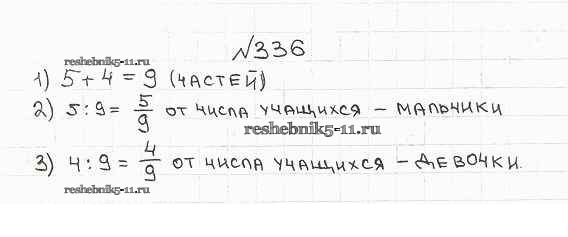 №336
reshebnik5-11.ru
1) 5 + 4 = 9 (ЧАСТЕЙ)
2) 5 : 9 = 5/9 ОТ ЧИСЛА УЧАЩИХСЯ – МАЛЬЧИКИ
reshebnik5-11.ru
3) 4 : 9 = 4/9 ОТ ЧИСЛА УЧАЩИХСЯ – ДЕВОЧКИ.
reshebnik5-11.ru